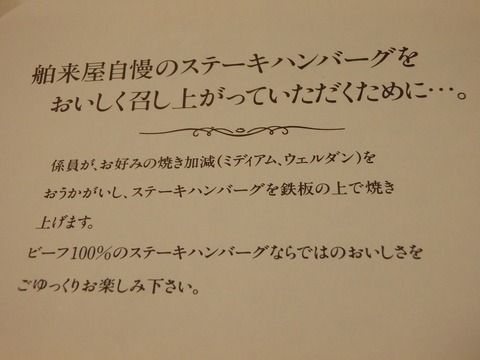 舶来屋自慢のステーキハンバーグを
おいしく召し上がっていただくために…。
係員が、お好みの焼き加減(ミディアム、ウェルダン)を
おうかがいし、ステーキハンバーグを鉄板の上で焼き
上げます。
ビーフ100%のステーキハンバーグならではのおいしさを
ごゆっくりお楽しみ下さい。